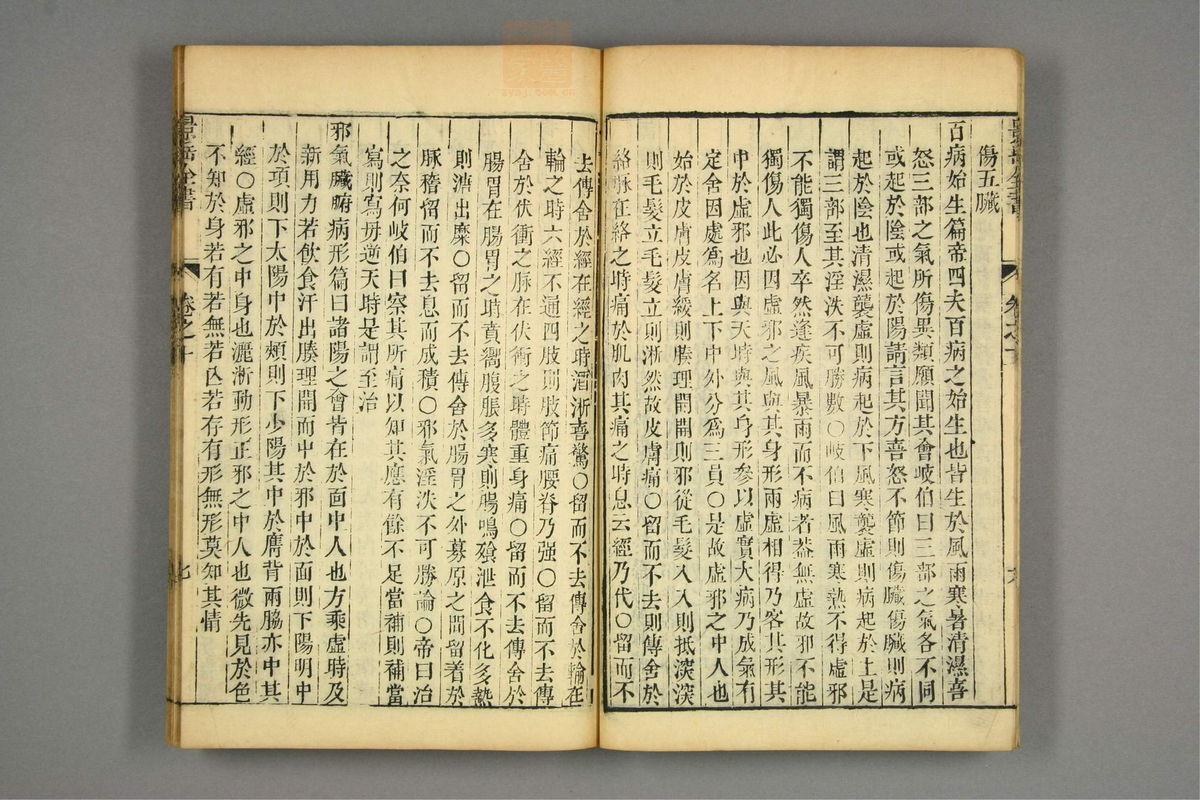 傷五臟
百病始生篇帝四夫百病之始生也皆生於風雨寒暑清濕喜
怒三部之氣所傷異類願聞其會岐伯曰三部之氣各不同
或起於陰或起於陽請言其方喜怒不節則傷臟傷臟則病
起於陰也清濕襲虛則病起於下風寒襲虛則病起於上是
謂三部至其淫泆不可勝數〇岐伯曰風雨寒熱不得虛邪
不能獨傷人卒然逢疾風暴雨而不病者葢無虛故邪不能
獨傷人此必因虛邪之風與其身形兩虛相得乃客其形其
中於虛邪也因與天時與其身形參以虛實大病乃成氣有
定舍因處爲名上下中外分爲三員〇是故虛邪之中人也
始於皮膚皮膚緩則腠理開開則邪從毛髮入入則抵深深
則毛髮立毛髮立則淅然故皮膚痛〇留而不去則傳舍於
絡脉在絡之時痛於肌肉其痛之時息云經乃代〇留而不
去傳舍於經在經之時洒淅喜驚〇留而不去傳舍於輸在
輸之時六經不通四肢則肢節痛腰脊乃强〇留而不去傳
舍於伏衝之脉在伏衝之時體重身痛〇留而不去傳舍於
腸胃在腸胃之時賁嚮腹脹多寒則腸鳴飱泄食不化多熱
則溏出糜〇留而不去傳舍於腸胃之外募原之間留着於
脉稽留而不去息而成積〇邪氣淫泆不可勝論〇帝曰治
之奈何岐伯曰察其所痛以知其應有餘不足當補則補當
寫則寫毋逆天時是謂至治
邪氣臟腑病形篇曰諸陽之會皆在於面中人也方乘虛時及
新用力若飲食汗出腠理開而中於邪中於面則下陽明中
於項則下太陽中於頰則下少陽其中於膺背兩脇亦中其
經〇虛邪之中身也灑淅動形正邪之中人也微先見於色
不知於身若有若無若亾若存有形無形莫知其情
景岳全書
卷之十
七